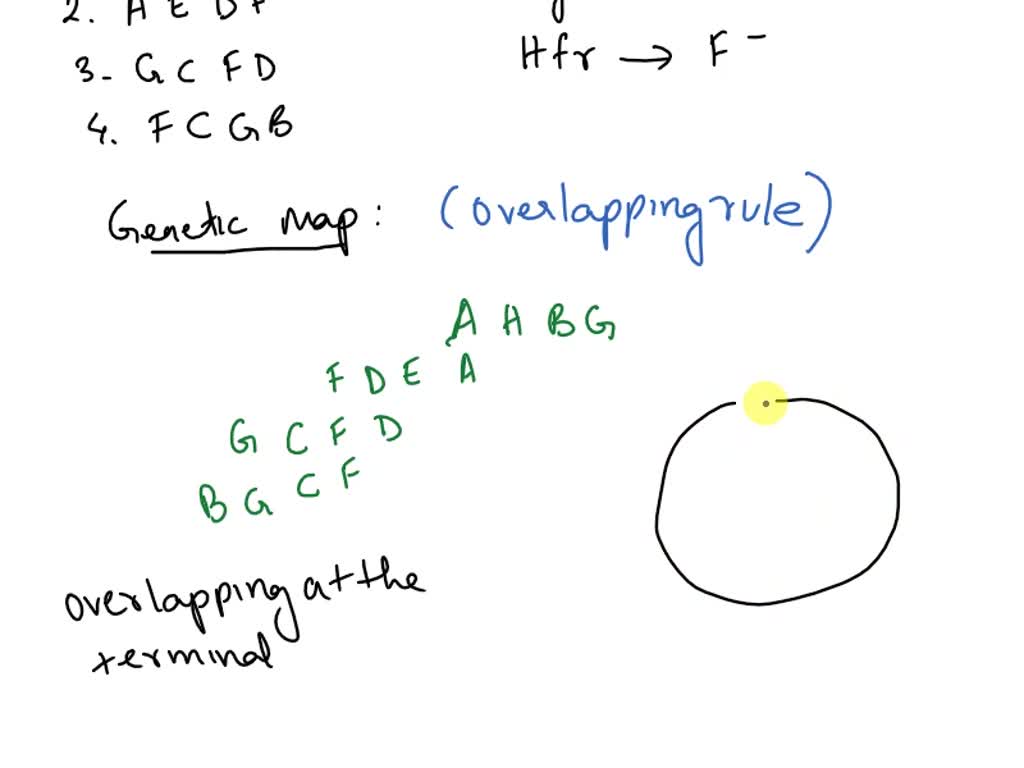 2. A E D F
3- G C F D
Hfr → F -
4. F C G B
Genetic Map: (overlapping rule)
A H B G
F D E A
G C F D
B G C F
overlapping at the
terminal